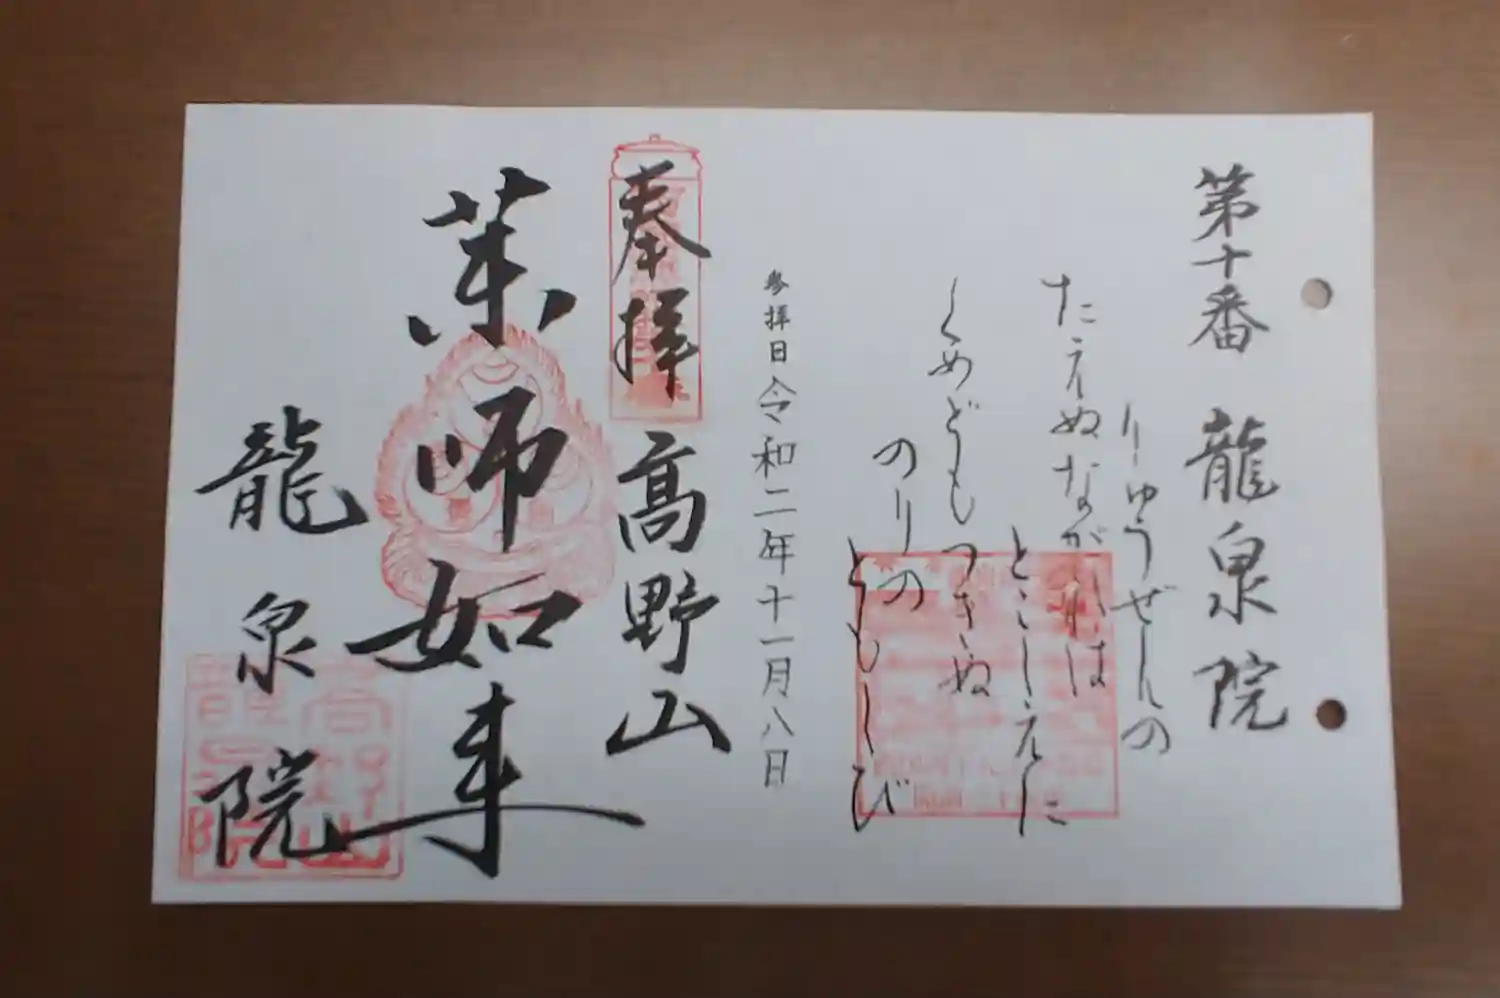 第十番 龍泉院
りゅうぜんの
たえぬながれは
とこしえに
くめどもつきぬ
のりの
ともしび
参拝日令和二年十一月八日
奉拝 高野山
薬師如来
龍泉院